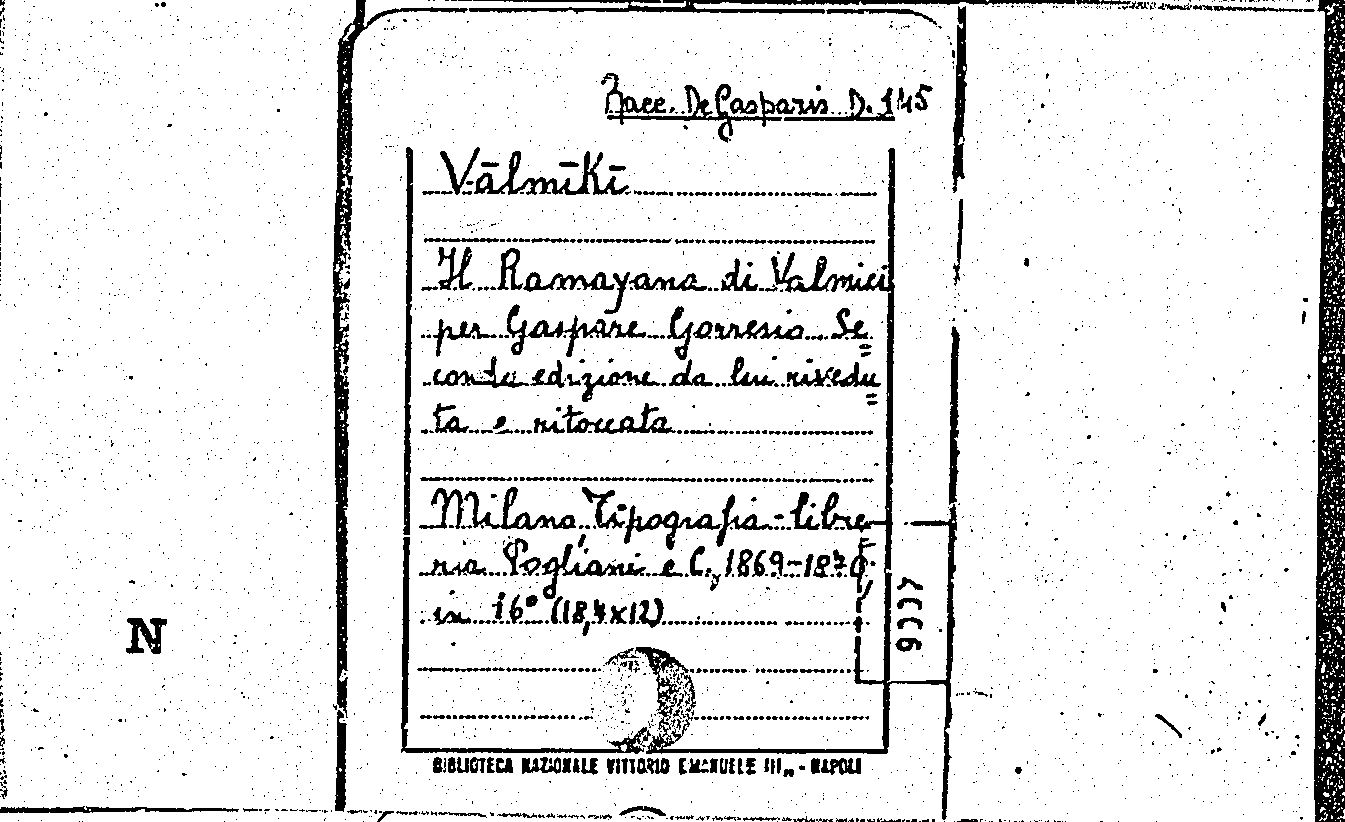 Racc. De Gasparis D. 145
Vālmīkī
Il Ramayana di Valmici
per Gaspare Gorresio Se=
conda edizione da lui rivedu=
ta e ritoccata
Milano, Tipografia-libre=
ria Pogliani e C., 1869-1870,
in 16° (18,4x12)
N
BIBLIOTECA NAZIONALE VITTORIO EMANUELE III„ - NAPOLI